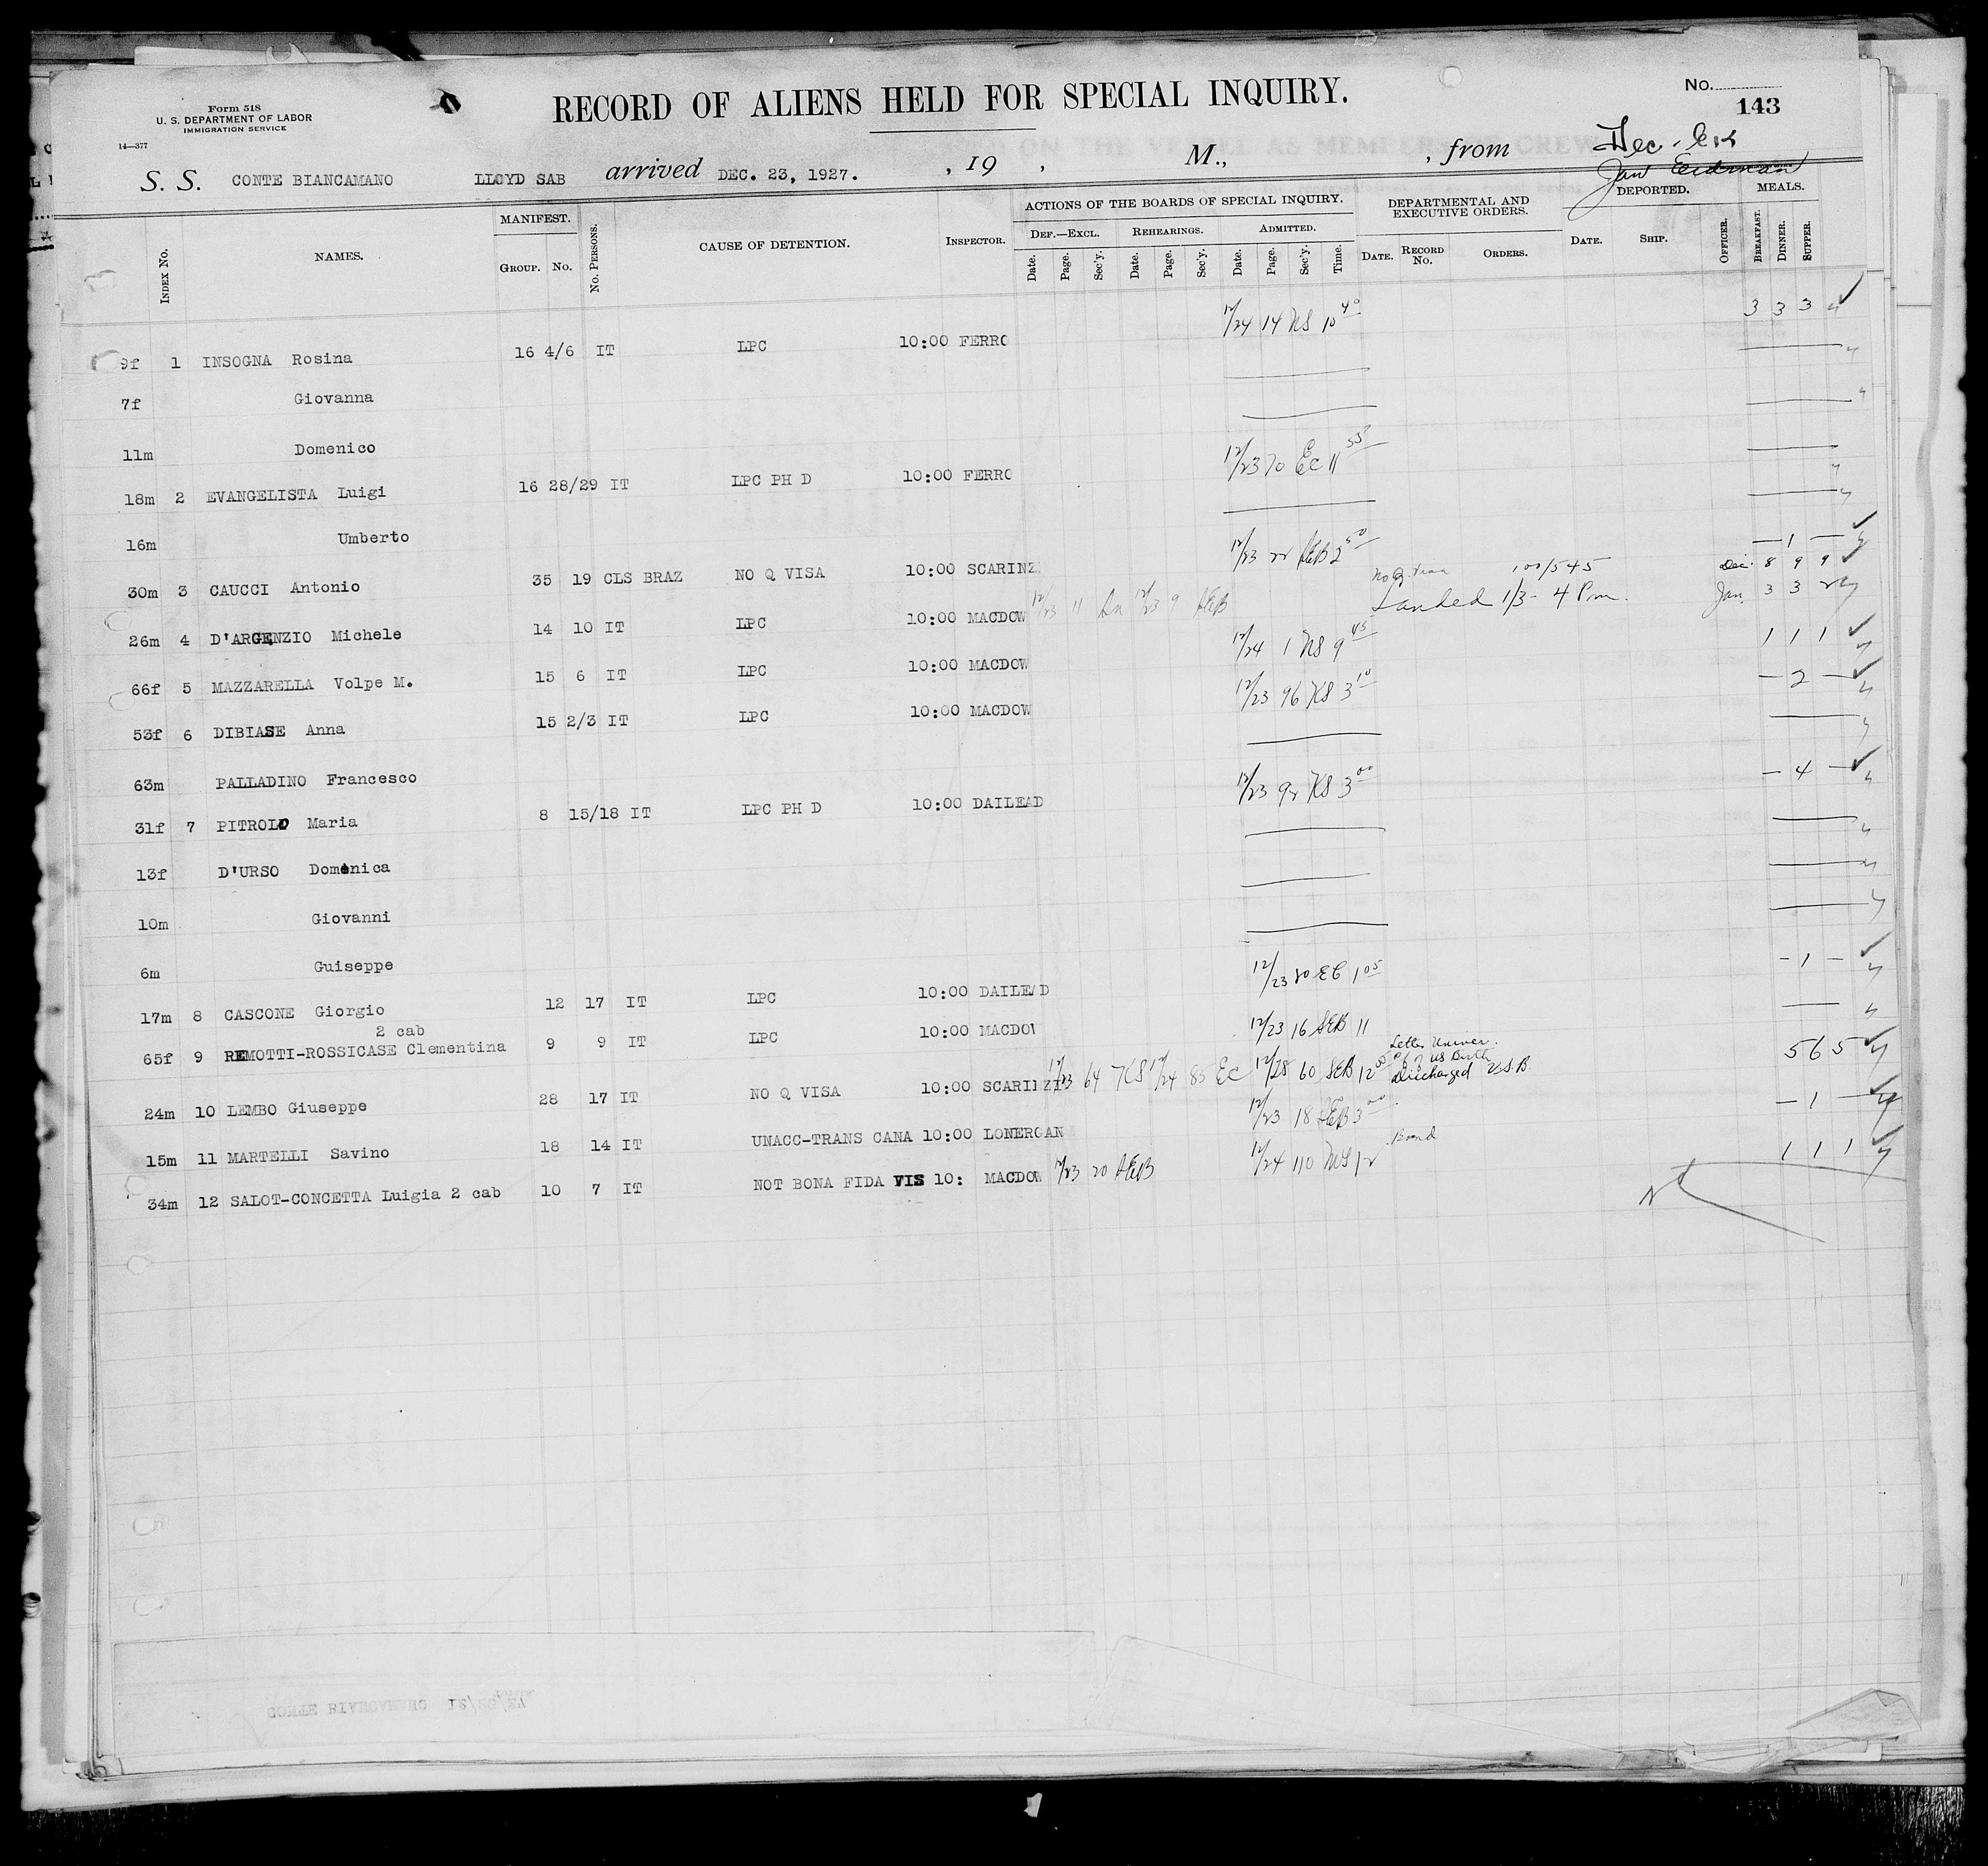 Form 518
U. S. DEPARTMENT OF LABOR
IMMIGRATION SERVICE
14—377
RECORD OF ALIENS HELD FOR SPECIAL INQUIRY.
No.
143
S. S. CONTE BIANCAMANO LLOYD SAB arrived DEC. 23, 1927. , 19 , M., , from
Dec.
Jan Eerdman
INDEX NO. NAMES. MANIFEST. GROUP. NO. No. PERSONS. CAUSE OF DETENTION. INSPECTOR. ACTIONS OF THE BOARDS OF SPECIAL INQUIRY. DEF.—EXCL. Date. Page. Sec'y. REHEARINGS. Date. Page. Sec'y. ADMITTED. Date. Page. Sec'y. Time. DEPARTMENTAL AND EXECUTIVE ORDERS. DATE. RECORD NO. ORDERS. DEPORTED. DATE. SHIP. OFFICER. MEALS. BREAKFAST. DINNER. SUPPER.
9f 1 INSOGNA Rosina 16 4/6 IT LPC 10:00 FERRO 12/24 14 NS 10 40 3 3 3
7f Giovanna
11m Domenico
18m 2 EVANGELISTA Luigi 16 28/29 IT LPC PH D 10:00 FERRO 12/23 70 EC 11 55
16m Umberto
30m 3 CAUCCI Antonio 35 19 CLS BRAZ NO Q VISA 10:00 SCARINZ 12/23 22 SEB 2 50 — 1 —
26m 4 D'ARGENZIO Michele 14 10 IT LPC 10:00 MACDOW 12/23 11 12/23 9 SEB No Q. Visa 100/545 Landed 1/3 - 4 P.m. Dec. 8 9 9 Jan. 3 3 2
66f 5 MAZZARELLA Volpe M. 15 6 IT LPC 10:00 MACDOW 12/24 1 NS 9 45 1 1 1
53f 6 DIBIASE Anna 15 2/3 IT LPC 10:00 MACDOW 12/23 96 KS 3 10 — 2 —
63m PALLADINO Francesco
31f 7 PITROLO Maria 8 15/18 IT LPC PH D 10:00 DAILEAD 12/23 92 KS 3 00 — 4 —
13f D'URSO Domenica
10m Giovanni
6m Guiseppe
17m 8 CASCONE Giorgio 12 17 IT LPC 10:00 DAILEAD 12/23 80 EC 1 05 — 1 —
2 cab
65f 9 REMOTTI-ROSSICASE Clementina 9 9 IT LPC 10:00 MACDOW 12/23 16 SEB 11
24m 10 LEMBO Giuseppe 28 17 IT NO Q VISA 10:00 SCARINZI 12/23 64 KS 12/24 85 EC 12/28 60 SEB 12 Letter US Birth Discharged U.S.B. 5 6 5
15m 11 MARTELLI Savino 18 14 IT UNACC-TRANS CANA 10:00 LONERGAN 12/23 18 SEB 3 00 — 1 —
34m 12 SALOT-CONCETTA Luigia 2 cab 10 7 IT NOT BONA FIDA VIS 10: MACDOW 12/23 20 SEB 12/24 110 NS 12 Bond 1 1 1